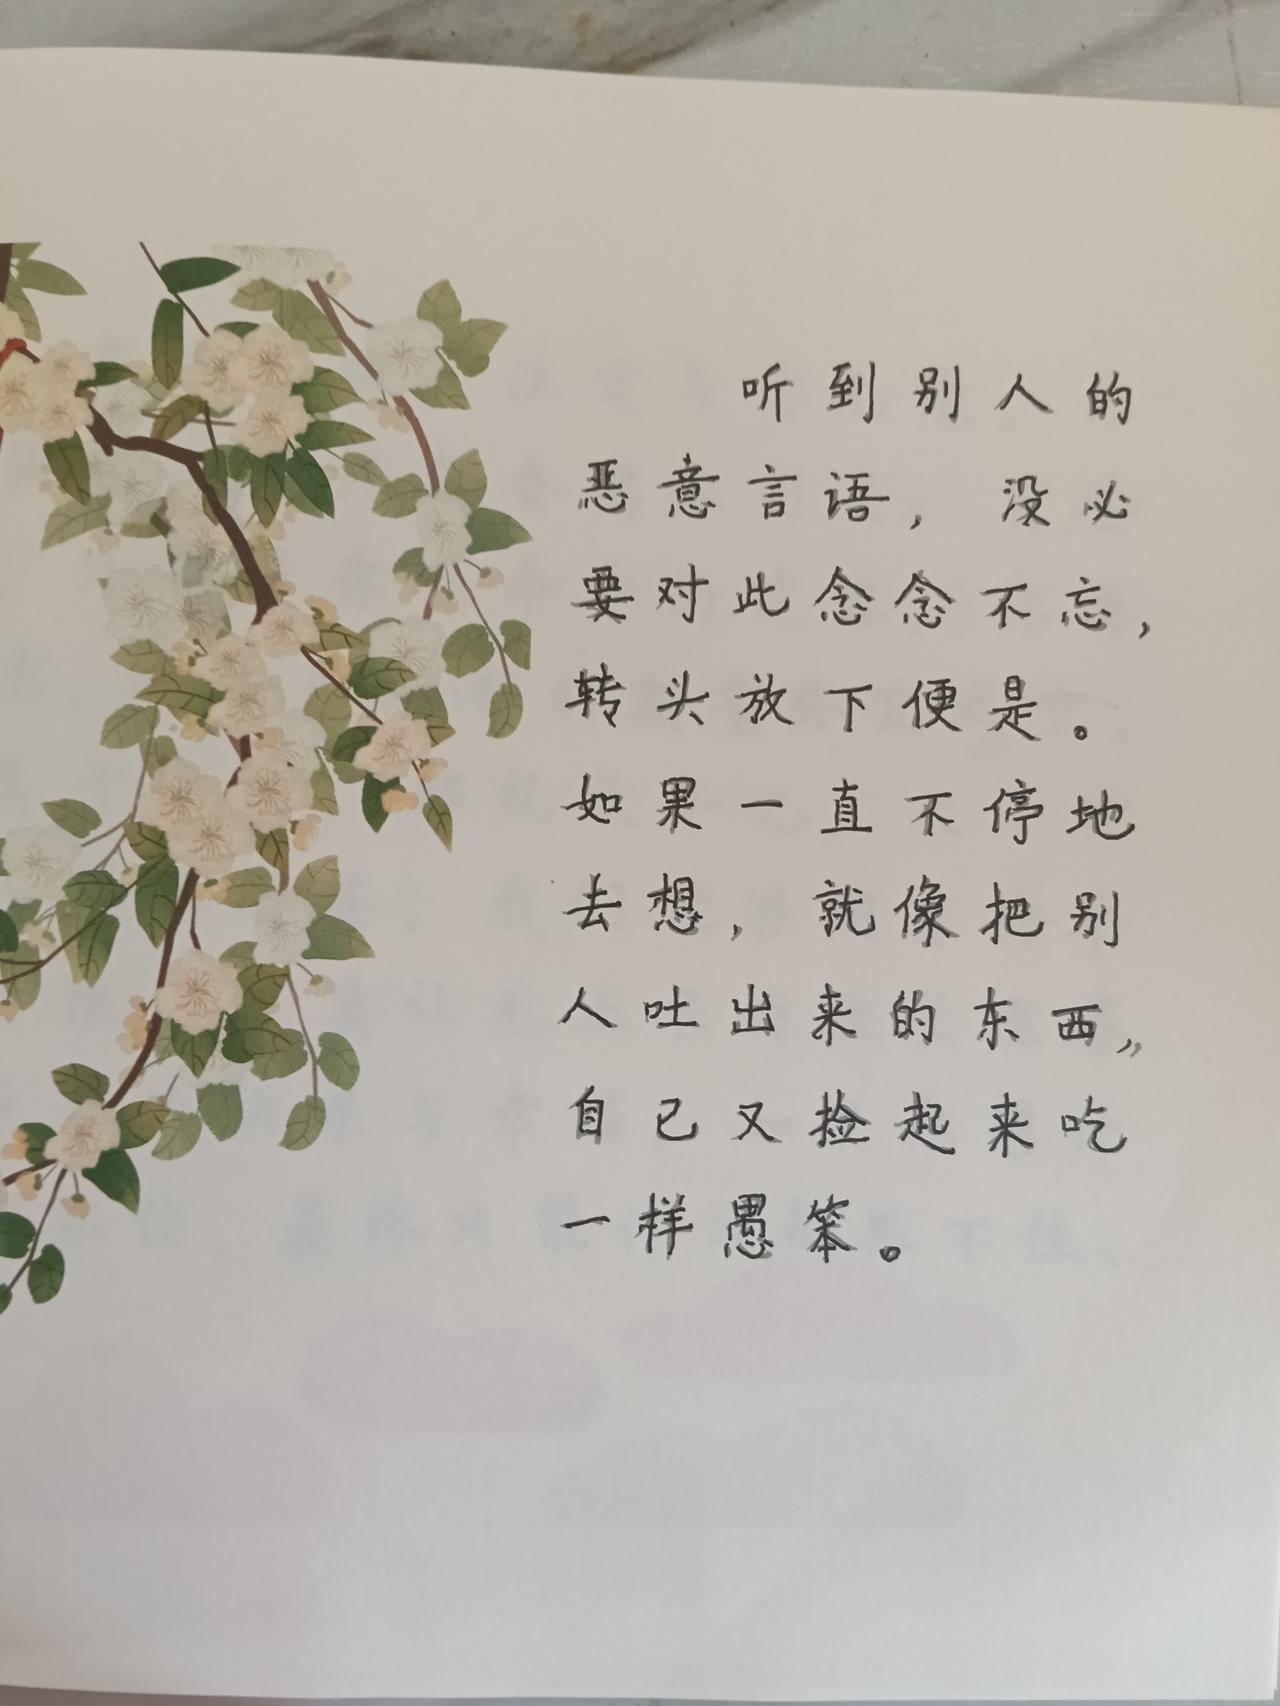 听到别人的
恶意言语，没必
要对此念念不忘，
转头放下便是。
如果一直不停地
去想，就像把别
人吐出来的东西，
自己又捡起来吃
一样愚笨。